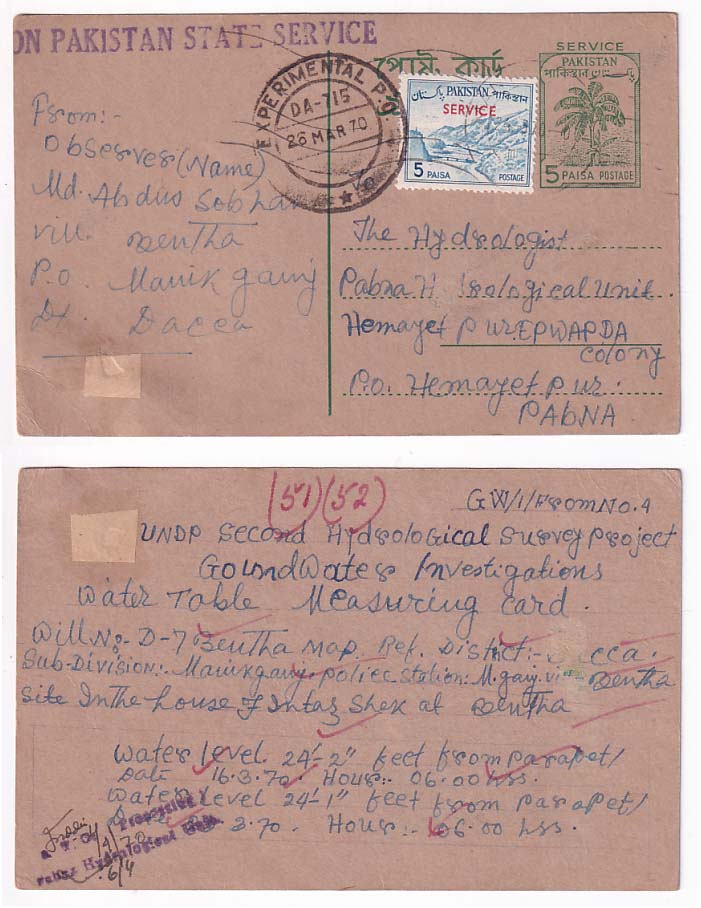 ON PAKISTAN STATE SERVICE
পোষ্ট কার্ড
SERVICE
PAKISTAN
পাকিস্তান پاکستان
5 PAISA POSTAGE
پاکستان PAKISTAN পাকিস্তান
SERVICE
5 PAISA POSTAGE
EXPERIMENTAL P.O.
DA-715
26 MAR 70
From:-
Observer (Name)
Md. Abdus Sobhan
Vill. Bentha
P.O. Manikganj
Dt. Dacca
To
The Hydrologist
Pabna Hydrological Unit.
Hemayet Pur. EPWAPDA
Colony
P.o. Hemayet pur.
PABNA.
(51) (52)
GW/1/From No. 4
UNDP Second Hydrological Survey Project
GoundWater Investigations
Water Table Measuring card.
Will No:- D-7 Bentha Map. Ref. District:- Dacca.
Sub-Division:. Manikganj. police station: M.ganj. Bentha
Site In the house of Intaz Shek at Bentha
Water level. 24'-2" feet from parapet/
Date 16.3.70. Hour:- 06.00 hrs.
Water level 24'-1" feet from parapet/
3.70. Hour:- 06.00 hrs.
Hydrological
6/4